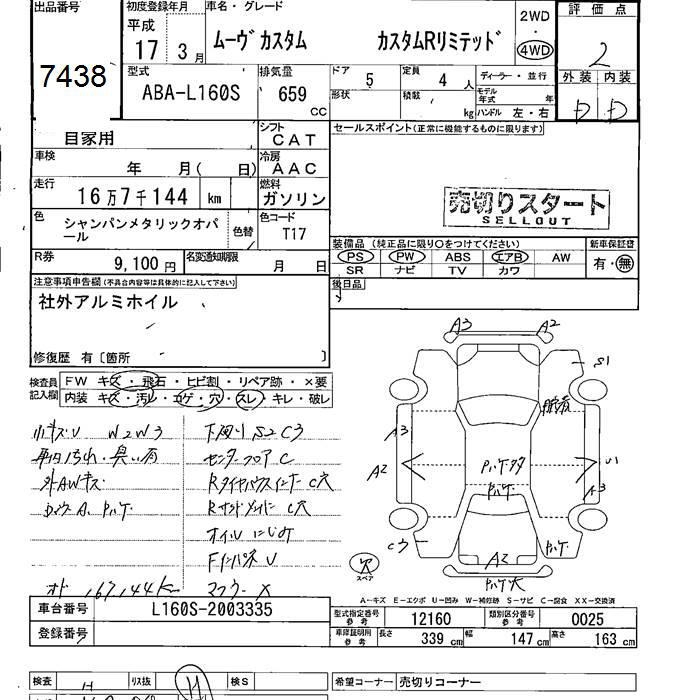 出品番号
7438
初度登録年月
平成
17 3月
車名・グレード
ムーヴ カスタム カスタムRリミテッド
2WD
・
4WD
評価点
2
外装 内装
D D
型式
ABA-L160S
排気量
659 CC
ドア 5
定員 4 人
形状
積載 kg
ディーラー・並行
モデル年式 年
ハンドル 左・右
自家用
シフト
CAT
車検
年 月( 日)
冷房
AAC
走行
16万7千144 km
燃料
ガソリン
色
シャンパンメタリックオパール
色替
色コード
T17
R券
9,100円
名変通知期限
月 日
セールスポイント(正常に機能するものに限ります)
売切りスタート
SELLOUT
装備品(純正品に限り○をつけてください)
PS PW ABS エアB AW
SR ナビ TV カワ
新車保証書
有・無
後日品
注意事項申告欄(不具合内容等は具体的に記入して下さい)
社外アルミホイル
修復歴 有〔箇所 〕
検査員記入欄
FW キズ・飛石・ヒビ割・リペア跡・×要
内装 キズ・汚レ・コゲ・穴・スレ・キレ・破レ
小キズU W2W3
車内汚れ・臭い有
外AWキズ
下廻りS2C3
センターフロアC
オイルにじみ
FインパネU
マフラーX
オド 167,144km
A3
A2
S1
A3
A2
A3
C3
A2
スペア
A-キズ E-エクボ U-凹み W-補修跡 S-サビ C-腐食 XX-交換済
車台番号
L160S-2003335
登録番号
型式指定番号 参考
12160
類別区分番号 参考
0025
車庫証明用 参考
長さ 339 cm
幅 147 cm
高さ 163 cm
検査 H
リス抜
H
検S
希望コーナー
売切りコーナー